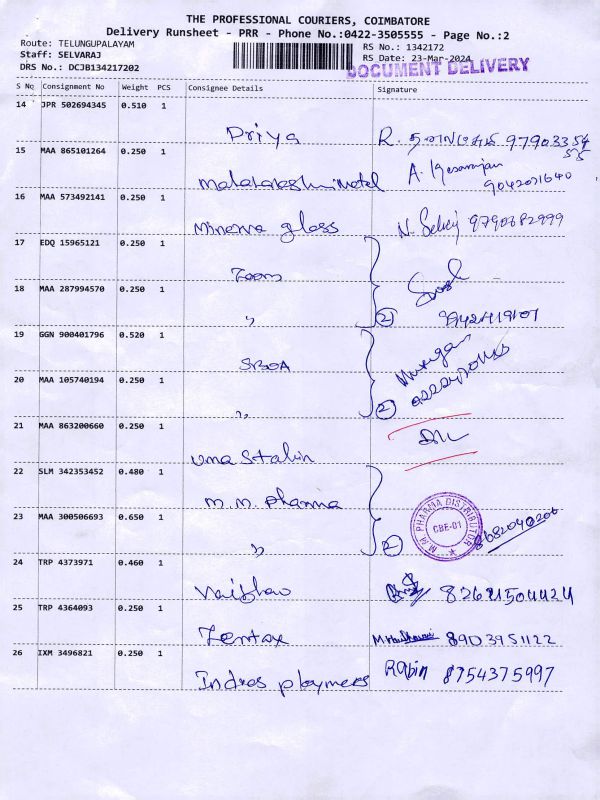 THE PROFESSIONAL COURIERS, COIMBATORE
Delivery Runsheet - PRR - Phone No.:0422-3505555 - Page No.:2
Route: TELUNGUPALAYAM
RS No.: 1342172
Staff: SELVARAJ
RS Date: 23-Mar-2024
DRS No.: DCJB134217202
DOCUMENT DELIVERY
S No Consignment No Weight PCS Consignee Details Signature
14 JPR 502694345 0.510 1
Priya R.
15 MAA 865101264 0.250 1
Mahalakshmi Motel A.
16 MAA 573492141 0.250 1
Minerva glass N. Selvij 9790682999
17 EDQ 15965121 0.250 1
Zoom
18 MAA 287994570 0.250 1
" 2
19 GGN 900401796 0.520 1
SBOA Murugan
20 MAA 105740194 0.250 1
" 2
21 MAA 863200660 0.250 1
Uma Stalin
22 SLM 342353452 0.480 1
M.M. Pharma
M.M PHARMA DISTRIBUTOR
CBE-01
23 MAA 300506693 0.650 1
" 2 8682040206
24 TRP 4373971 0.460 1
Vaishav
25 TRP 4364093 0.250 1
Zentax 8903951122
26 IXM 3496821 0.250 1
Indras ploymers Rabin 8754375997